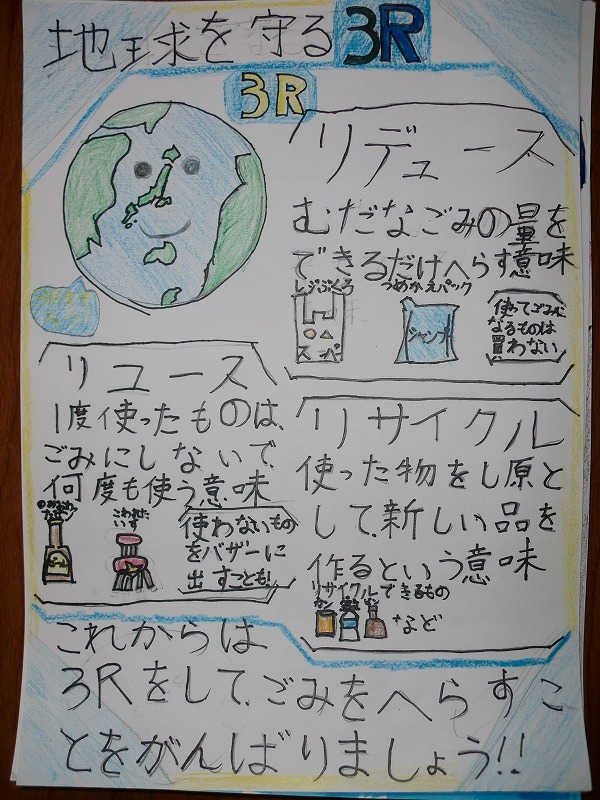 地球を守る3R
3R
リデュース
むだなごみの量を
できるだけへらす意味
レジぶくろ
スーパー
つめかえパック
シャンプー
使ってごみに
なるものは
買わない
リユース
1度使ったものは、
ごみにしないで、
何度も使う意味
こわれた
いす
使わないもの
をバザーに
出すことも!
リサイクル
使った物をし原と
して、新しい品を
作るという意味
リサイクルできるもの
カン
ビン
など
これからは
3Rをして、ごみをへらすこ
とをがんばりましょう!!